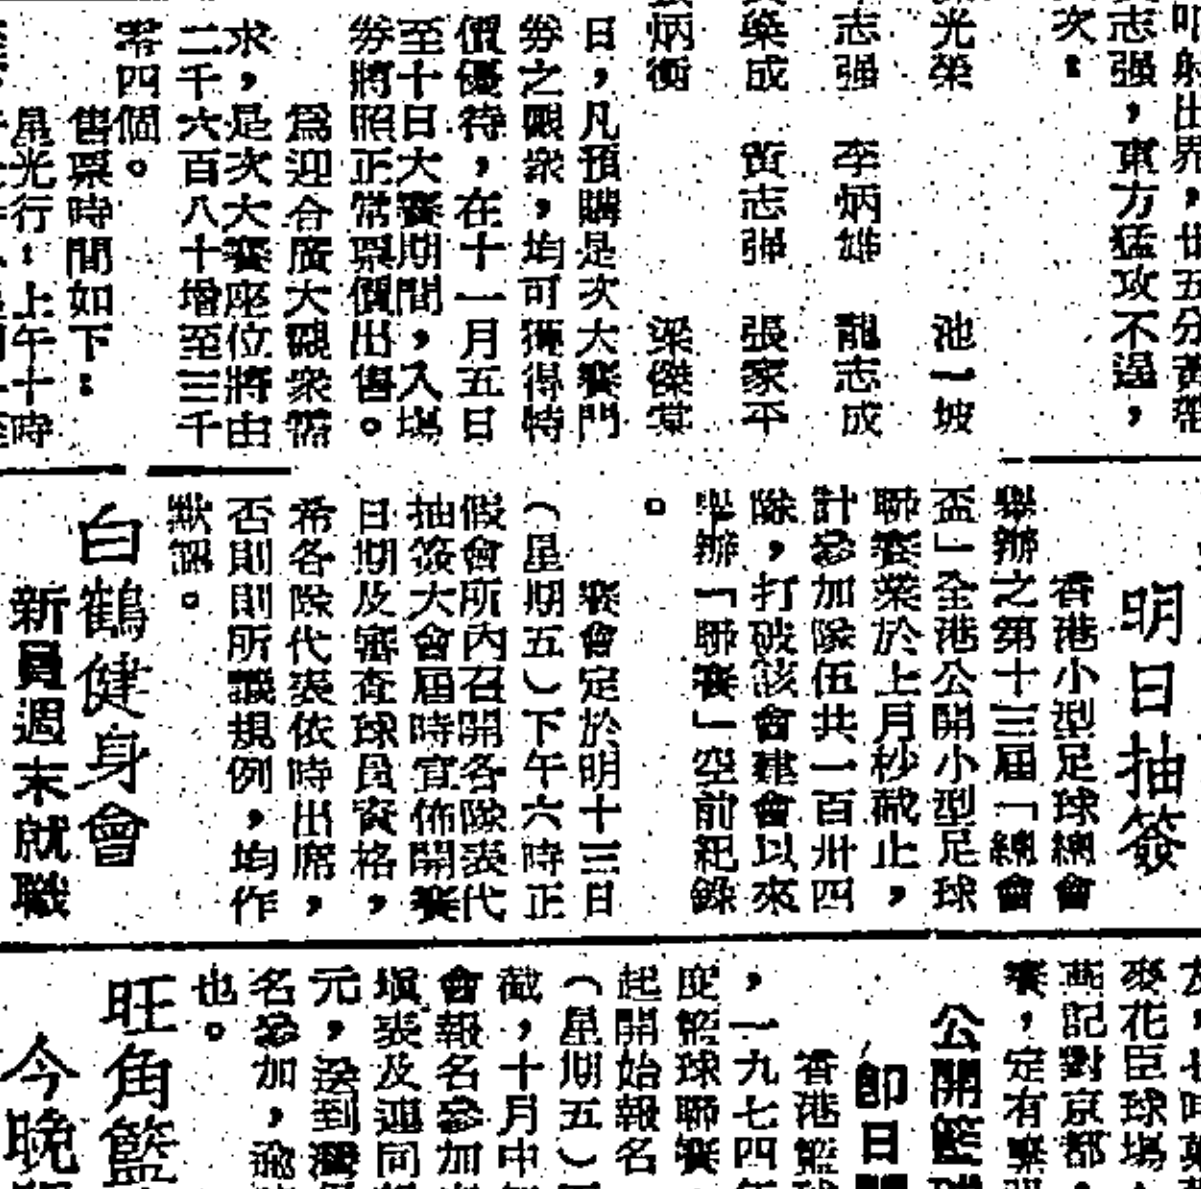 志强，東方猛攻不逞，
次：
光榮 池一坡
志强 李炳雄 龍志成
榮成 黃志强 張家平
炳衡 梁傑棠
日，凡預購是次大賽門
券之觀衆，均可獲得特
價優待，在十一月五日
至十日大賽期間，入場
券將照正常票價出售。
爲迎合廣大觀衆需
求，是次大賽座位將由
二千六百八十增至三千
零四個。
售票時間如下：
星光行：上午十時
明日抽簽
香港小型足球總會
舉辦之第十三屆「總會
盃」全港公開小型足球
聯賽業於上月杪截止，
計參加隊伍共一百卅四
隊，打破該會建會以來
舉辦「聯賽」空前紀錄
。
賽會定於明十三日
（星期五）下午六時正
假會所內召開各隊表代
抽簽大會屆時宣佈開賽
日期及審查球員資格，
希各隊代表依時出席，
否則則所議規例，均作
默認。
白鶴健身會
新員週末就職
麥花臣球場
記對京都
賽，定有
公開籃
即日
香港籃球
，一九七四年
度籃球聯賽
起開始報名
（星期五）
截，十月中
會報名參加
填表及連同
元，
名參加，
也。
旺角籃
今晚